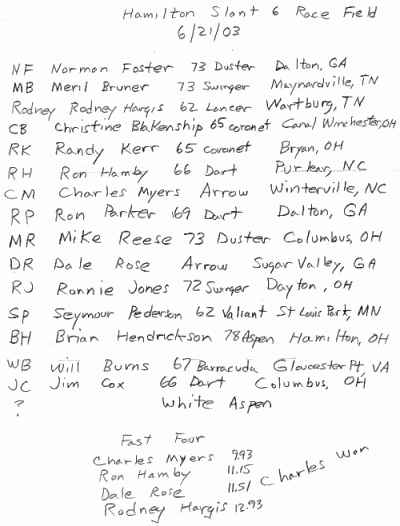 Hamilton Slant 6 Race Field
6/21/03
NF Norman Foster 73 Duster Dalton, GA
MB Meril Bruner 73 Swinger Maynardville, TN
Rodney Rodney Hargis 62 Lancer Wartburg, TN
CB Christine Blakenship 65 coronet Canal Winchester, OH
RK Randy Kerr 65 coronet Bryan, OH
RH Ron Hamby 66 Dart Purlear, NC
CM Charles Myers Arrow Winterville, NC
RP Ron Parker 69 Dart Dalton, GA
MR Mike Reese 73 Duster Columbus, OH
DR Dale Rose Arrow Sugar Valley, GA
RJ Ronnie Jones 72 Swinger Dayton, OH
SP Seymour Pederson 62 Valiant St Louis Park, MN
BH Brian Hendrickson 78 Aspen Hamilton, OH
WB Will Burns 67 Barracuda Gloucester Pt, VA
JC Jim Cox 66 Dart Columbus, OH
? White Aspen
Fast Four
Charles Myers 9.93
Ron Hamby 11.15
Dale Rose 11.51
Rodney Hargis 12.93
Charles won